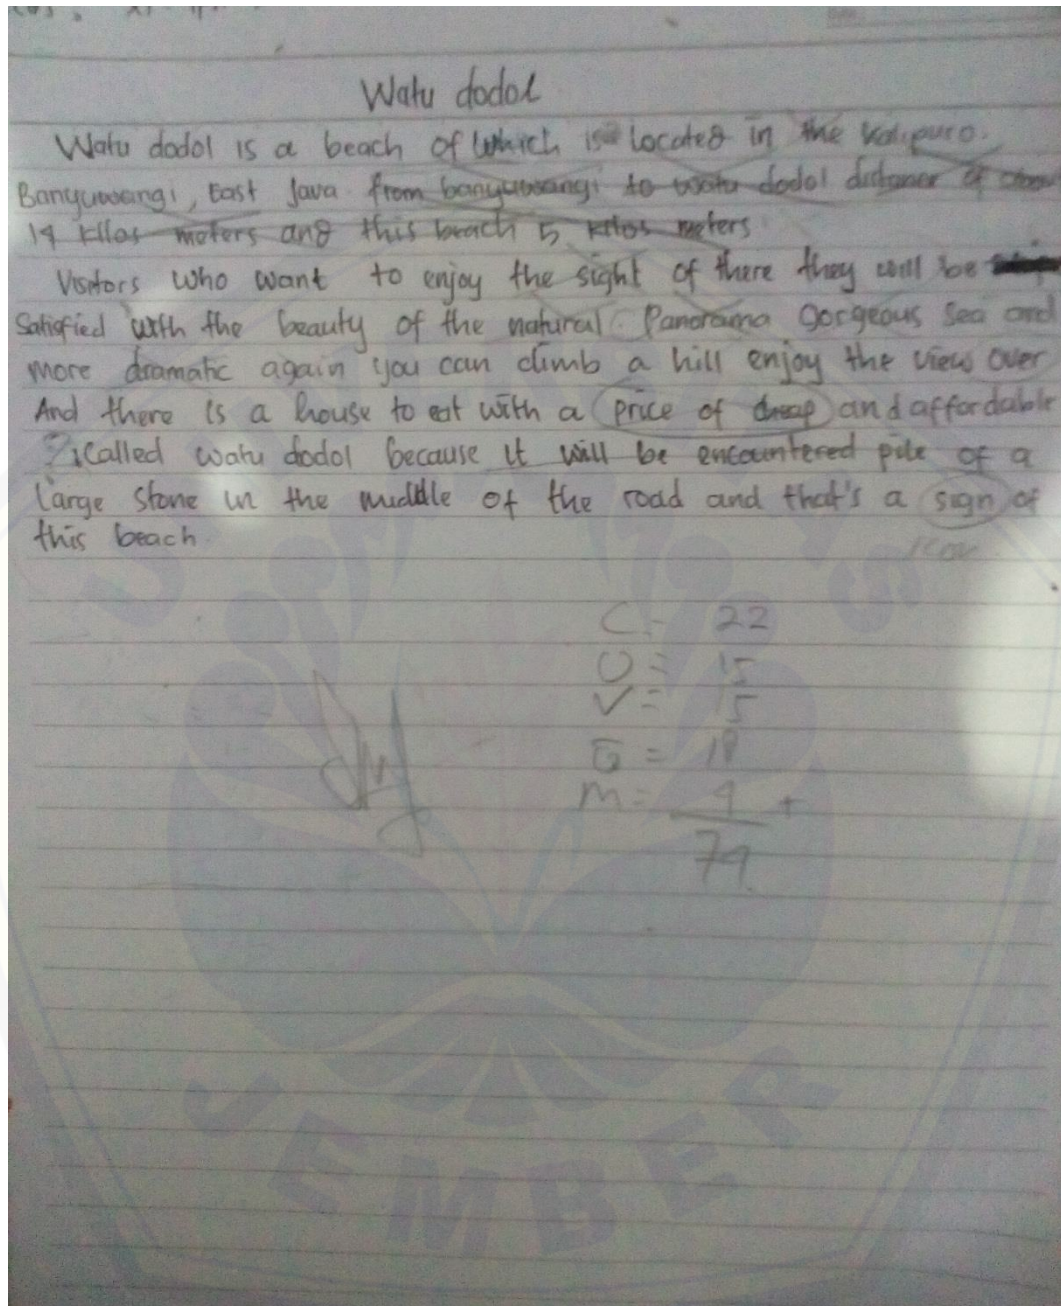 Watu dodol
Watu dodol is a beach of Which is Located in the Kalipuro.
Banyuwangi, East Java from banyuwangi to watu dodol distance of about
14 killos meters and this beach 5 killos meters
Visitors who want to enjoy the sight of there they will be
Satisfied with the beauty of the natural. Panorama Gorgeous Sea and
more dramatic again you can climb a hill enjoy the view over
And there is a house to eat with a price of cheap and affordable
? Called watu dodol because it will be encountered pile of a
large stone in the middle of the road and that's a sign of
this beach.
icon
C = 22
O = 15
V = 15
G = 18
m = 4 +
74
JEMBER